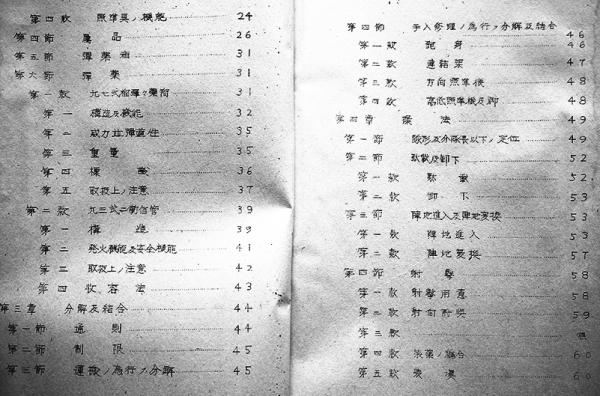 第四款 照準具ノ機能 24
第四節 属品 26
第五節 弾薬箱 31
第六節 弾薬 31
第一款 九七式榴弾々薬筒 31
第一 構造及機能 32
第二 威力並弾道性 35
第三 重量 35
第四 標識 36
第五 取扱上ノ注意 37
第二款 九三式二働信管 39
第一 構造 39
第二 発火機能及安全機能 41
第三 取扱上ノ注意 42
第四 収容法 43
第三章 分解及結合 44
第一節 通則 44
第二節 制限 45
第三節 運搬ノ為行フ分解 45
第四節 手入修理ノ為行フ分解及結合 46
第一款 砲身 46
第二款 連結架 47
第三款 方向照準機 48
第四款 高低照準機及脚 48
第四章 操法 49
第一節 隊形及分隊長以下ノ定位 49
第二節 駄載及卸下 52
第一款 駄載 52
第二款 卸下 53
第三節 陣地進入及陣地変換 53
第一款 陣地進入 53
第二款 陣地変換 57
第四節 射撃 58
第一款 射撃用意 58
第二款 射向附与 59
第三款
第四款 装薬ノ 60
第五款 装填 60